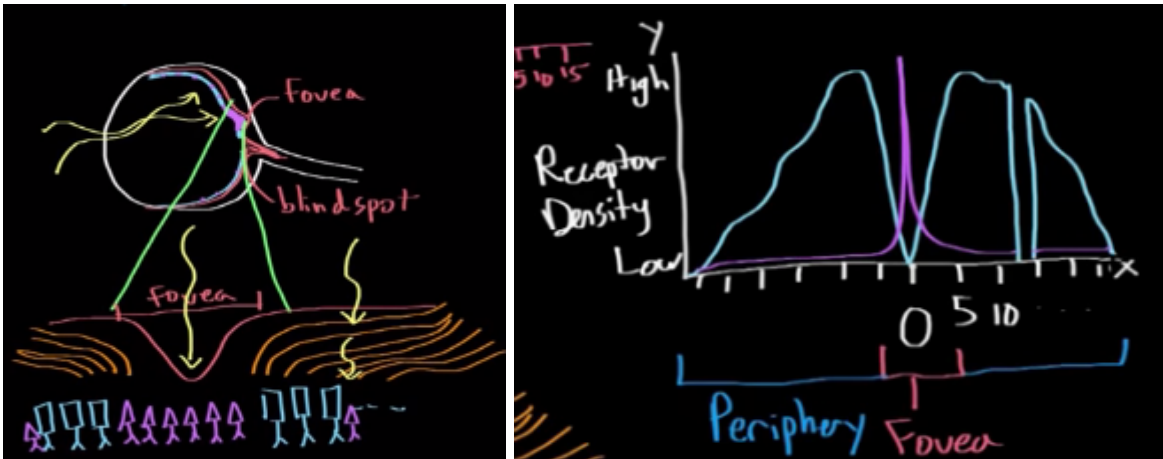 Fovea
blindspot
Fovea
5 10 15
Y
High
Receptor
Density
Low
X
0 5 10 ....
Periphery Fovea